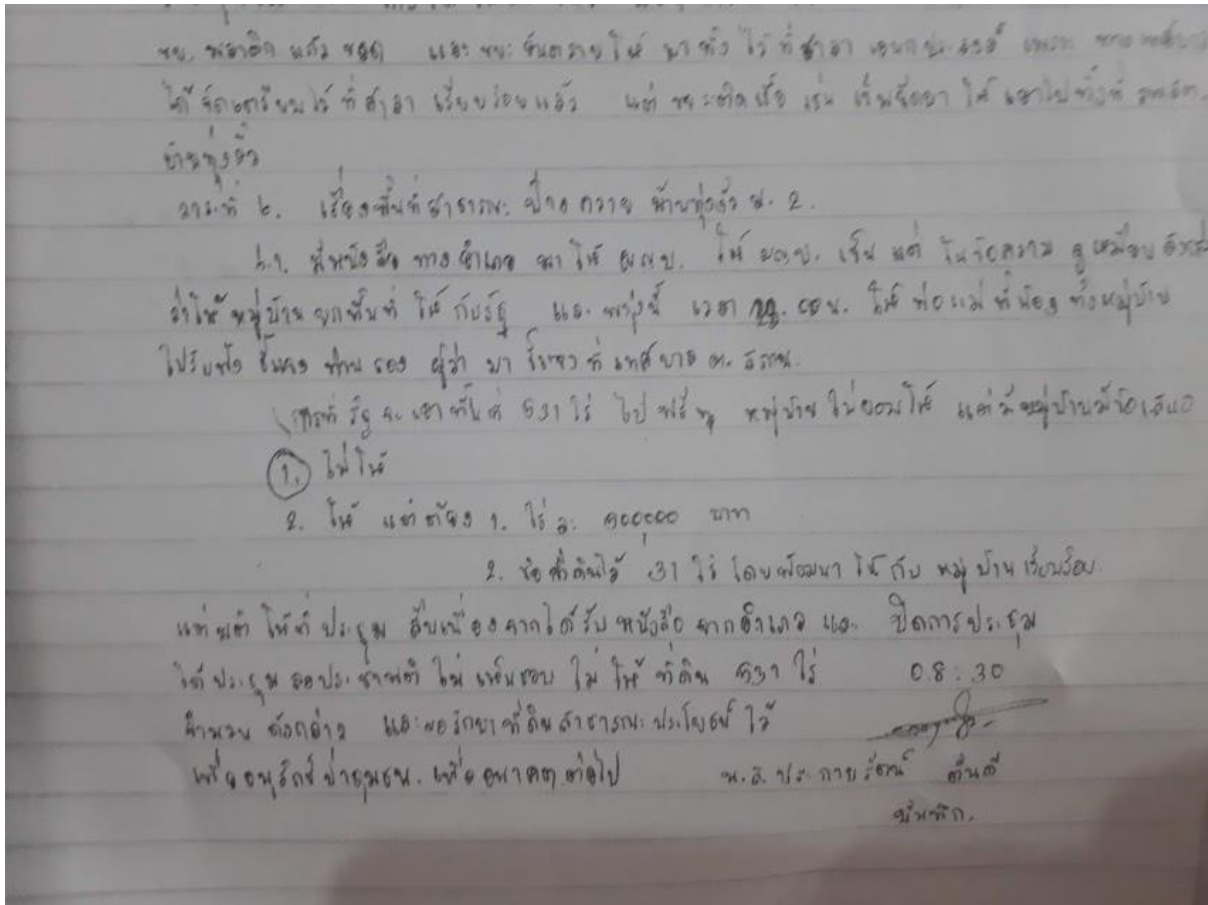 ขยะ พลาสติก แก้ว ขวด และ ขยะอันตรายให้ มาทิ้ง ไว้ที่ศาลา เอนกประสงค์ เพราะ ทาง
ได้จัดเตรียมไว้ที่ศาลา เรียบร้อยแล้ว แต่ ขยะติดเชื้อ เช่น เข็มฉีดยา ให้ เอาไปทิ้งที่ รพ.สต.
บ้านทุ่งงิ้ว
วาระที่ ๒. เรื่องพื้นที่สาธารณะ ป่าควาย บ้านทุ่งงิ้ว ม. 2.
2.1. มีหนังสือ ทางอำเภอ มาให้ ผญบ. ให้ ผญบ. เซ็น แต่ ในข้อความ ดูเหมือน
ว่าให้ หมู่บ้าน ยกพื้นที่ ให้ กับรัฐ และ พรุ่งนี้ เวลา ๐๐น. ให้ พ่อแม่ พี่น้อง ทั้งหมู่บ้าน
ไปรับฟัง ชี้แจง ท่าน รอง ผู้ว่า มา ชี้แจง ที่ เทศบาล ต. สถาน.
การที่ รัฐ จะ เอา พื้นที่ 531 ไร่ ไป ฟรี ๆ หมู่บ้าน ไม่ยอมให้ แต่ หมู่บ้านมีข้อเสนอ
1. ไม่ให้
2. ให้ แต่ต้อง 1. ไร่ ละ ๑๐๐๐๐๐ บาท
2. ซื้อที่ดินไว้ 31 ไร่ โดยพัฒนา ให้ กับ หมู่บ้าน เรียบร้อย.
แต่มติ ให้ที่ ประชุม สืบเนื่องจากได้รับ หนังสือ จากอำเภอ และ ปิดการประชุม
ได้ ประชุม ขอประชามติ ไม่ เห็นชอบ ไม่ ให้ ที่ดิน 531 ไร่ 08:30
จำนวน ดังกล่าว และขอรักษาที่ดินสาธารณะ ประโยชน์ ไว้
เพื่อ อนุรักษ์ ป่าชุมชน. เพื่อ อนาคต ต่อไป น.ส. ประกายรัตน์ ตันดี
บันทึก.